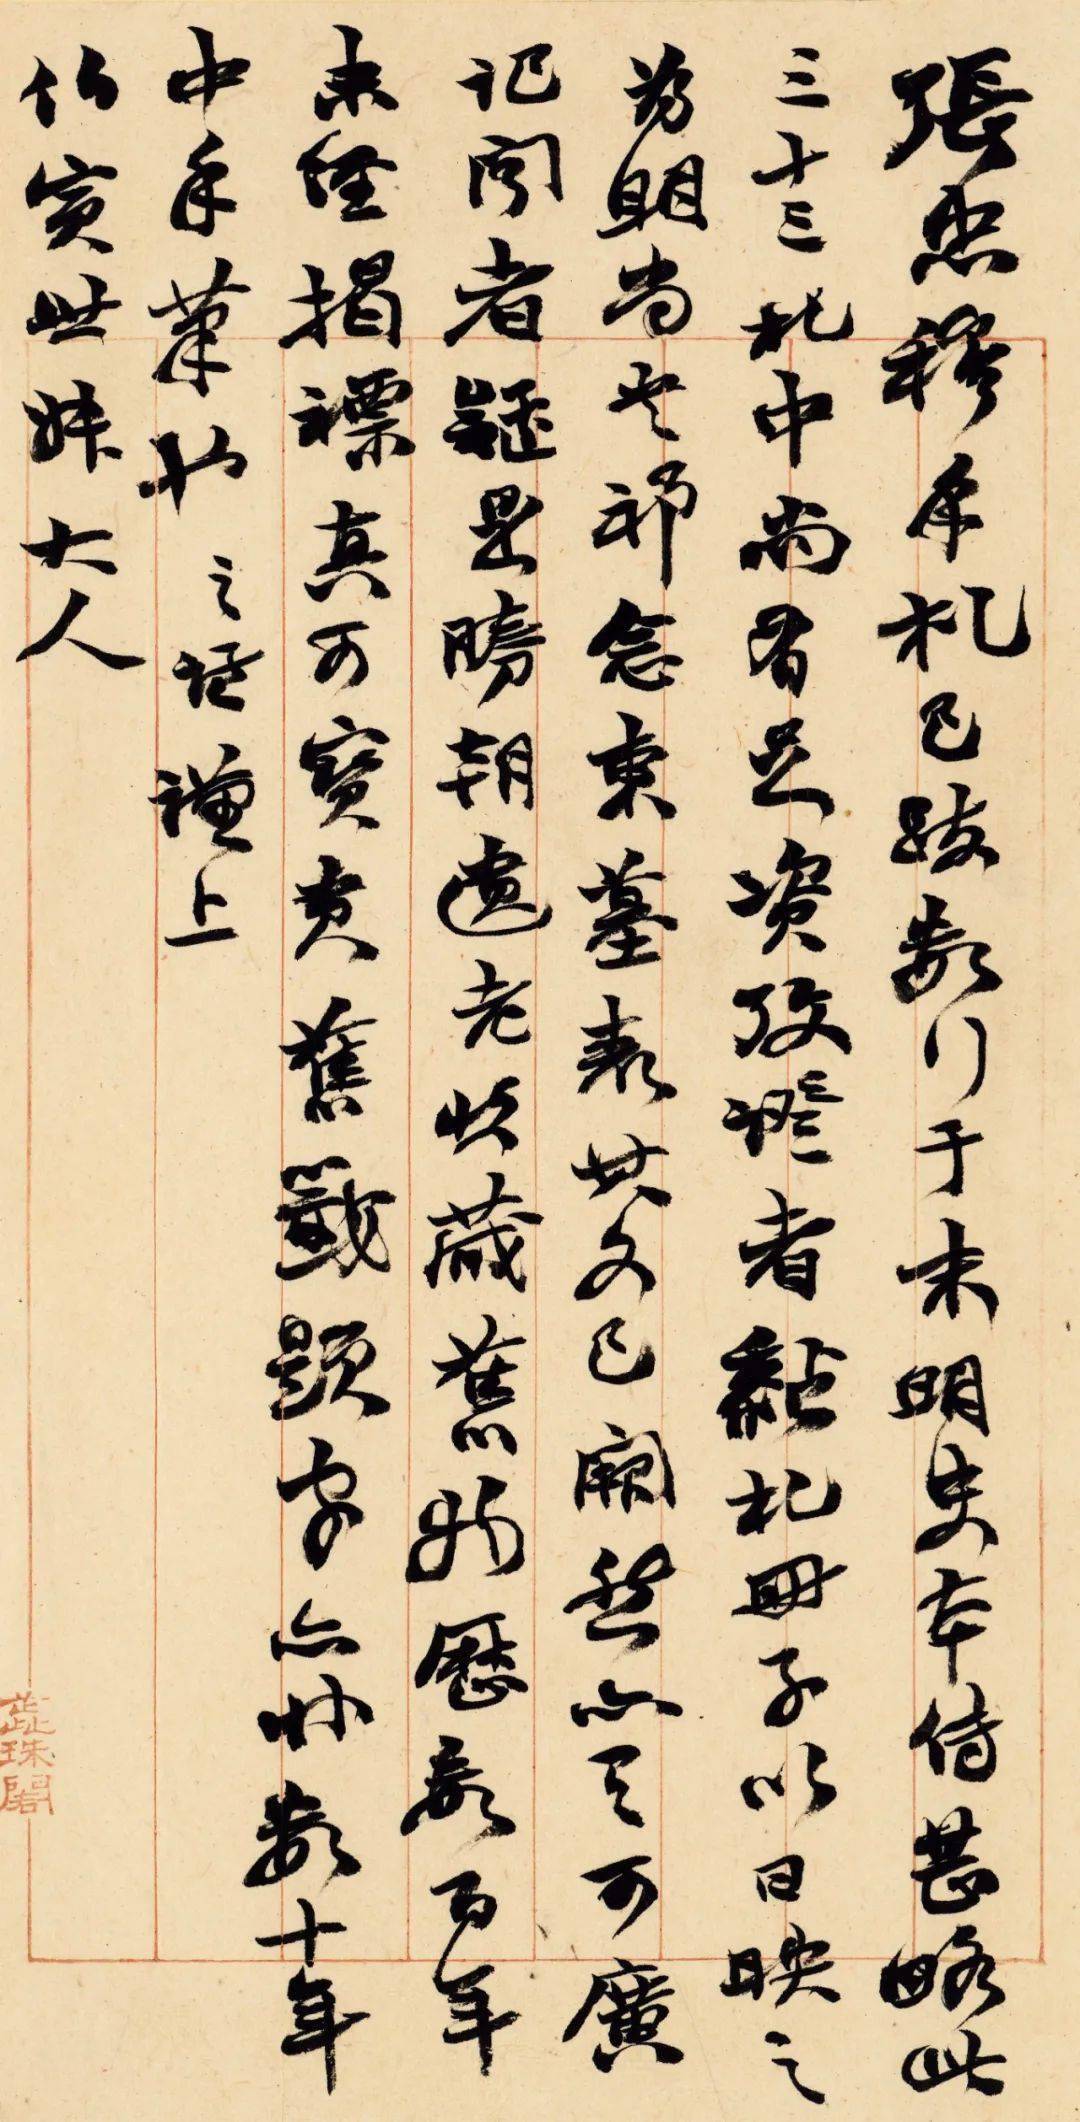 張忠穆手札已跋數行于末明史本傳甚略此
三十三札中尚有足資攷證者黏札冊子以日映之
為明尚書祁念東墓表其文已闕然亦可廣
記聞者疑是勝朝遺老收藏舊物歷數百年
未經揭褾真可寶貴舊籤題字亦非數十年
中手筆也 之謹上
賓世大人
蕊珠閣